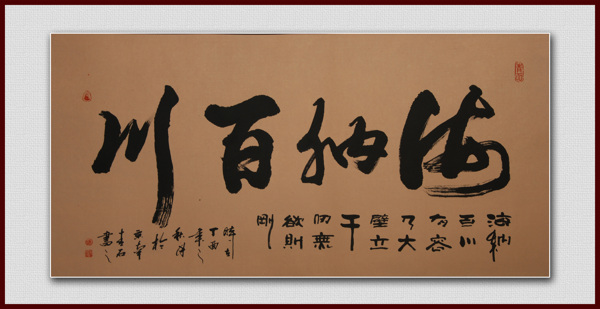 海納百川
海納
百川
有容
乃大
壁立
千
仞無
欲則
剛
丁酉
年之
秋
於
書之